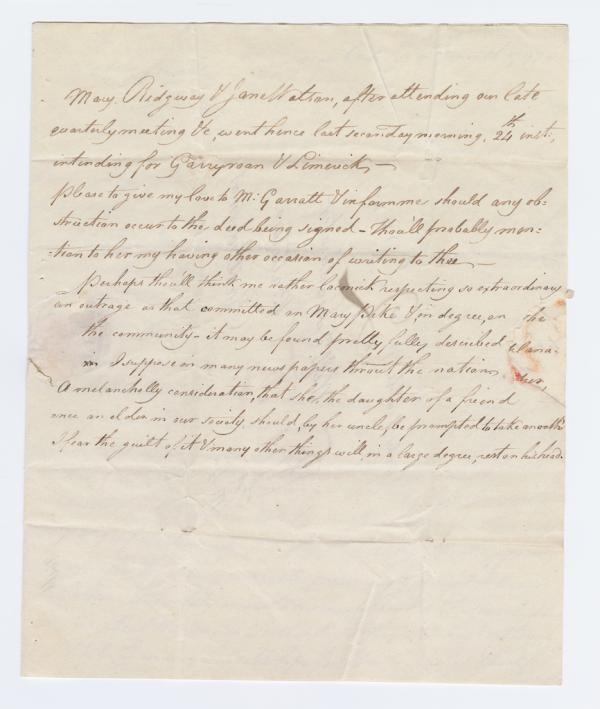 Mary Ridgway & Jane Watson, after attending our late
quarterly meeting &c, went hence last second day morning, 24th inst:,
intending for Garryroan & Limerick –
Please to give my love to M: Garratt & inform me should any ob=
struction occur to the deed being signed – Thou'll probably men=
=tion to her my having other occasion of writing to thee –
Perhaps thou'll think me rather laconick respecting so extraordinary
an outrage as that committed on Mary Pike & in degree, on the
the community – it may be found pretty fully described
in I suppose in many news papers thro'out the nation,
A melancholly consideration, that she, the daughter of a friend
once an elder in our society should, by her uncle, be prompted to take an oath
I fear the guilt of it & many other things will, in a large degree, rest on his head.